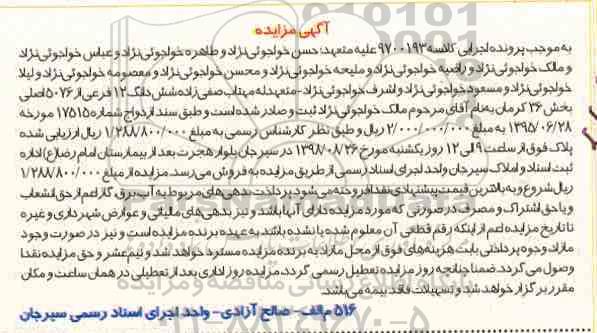 آگهی مزایده
به موجب پرونده اجرایی کلاسه ۹۷۰۰۱۹۳ علیه متعهد: حسن خواجوئی نژاد و طاهره خواجوئی نژاد و عباس خواجوئی نژاد
و مالک خواجوئی نژاد و راضیه خواجوئی نژاد و ملیحه خواجوئی نژاد و محسن خواجوئی نژاد و معصومه خواجوئی نژاد و لیلا
خواجوئی نژاد و مسعود خواجوئی نژاد و اشرف خواجوئی نژاد - متعهدله مهتاب صفی زاده شش دانگ ۱۲ فرعی از ۵۰۷۶ اصلی
بخش ۳۶ کرمان به نام آقای مرحوم مالک خواجوئی نژاد ثبت و صادر شده است و طبق سند ازدواج شماره ۱۷۵۱۵ مورخه
۱۳۹۵/۰۶/۲۸ به مبلغ ۲/۰۰۰/۰۰۰/۰۰۰ ریال و طبق نظر کارشناس رسمی به مبلغ ۱/۲۸۸/۸۰۰/۰۰۰ ریال ارزیابی شده
پلاک فوق از ساعت ۹ الی ۱۲ روز یکشنبه مورخ ۱۳۹۸/۰۸/۲۶ در سیرجان بلوار هجرت بعد از بیمارستان امام رضا(ع) اداره
ثبت اسناد و املاک سیرجان واحد اجرای اسناد رسمی از طریق مزایده به فروش می رسد. مزایده از مبلغ ۱/۲۸۸/۸۰۰/۰۰۰
ریال شروع و به بالاترین قیمت پیشنهادی نقدا فروخته می شود. پرداخت بدهی های مربوط به آب، برق، گاز اعم از حق انشعاب
و یا حق اشتراک و مصرف در صورتی که مورد مزایده دارای آنها باشد و نیز بدهی های مالیاتی و عوارض شهرداری و غیره
تا تاریخ مزایده اعم از اینکه رقم قطعی آن معلوم شده یا نشده باشد به عهده برنده مزایده است و نیز در صورت وجود
مازاد وجوه پرداختی بابت هزینه های فوق از محل مازاد به برنده مزایده مسترد خواهد شد و نیم عشر و حق مزایده نقدا
وصول می گردد. ضمنا چنانچه روز مزایده تعطیل رسمی گردد، مزایده روز اداری بعد از تعطیلی در همان ساعت و مکان
مقرر برگزار خواهد شد و تسهیلات فاقد بیمه می باشد.
۵۱۶ م/الف - صالح آزادی - واحد اجرای اسناد رسمی سیرجان